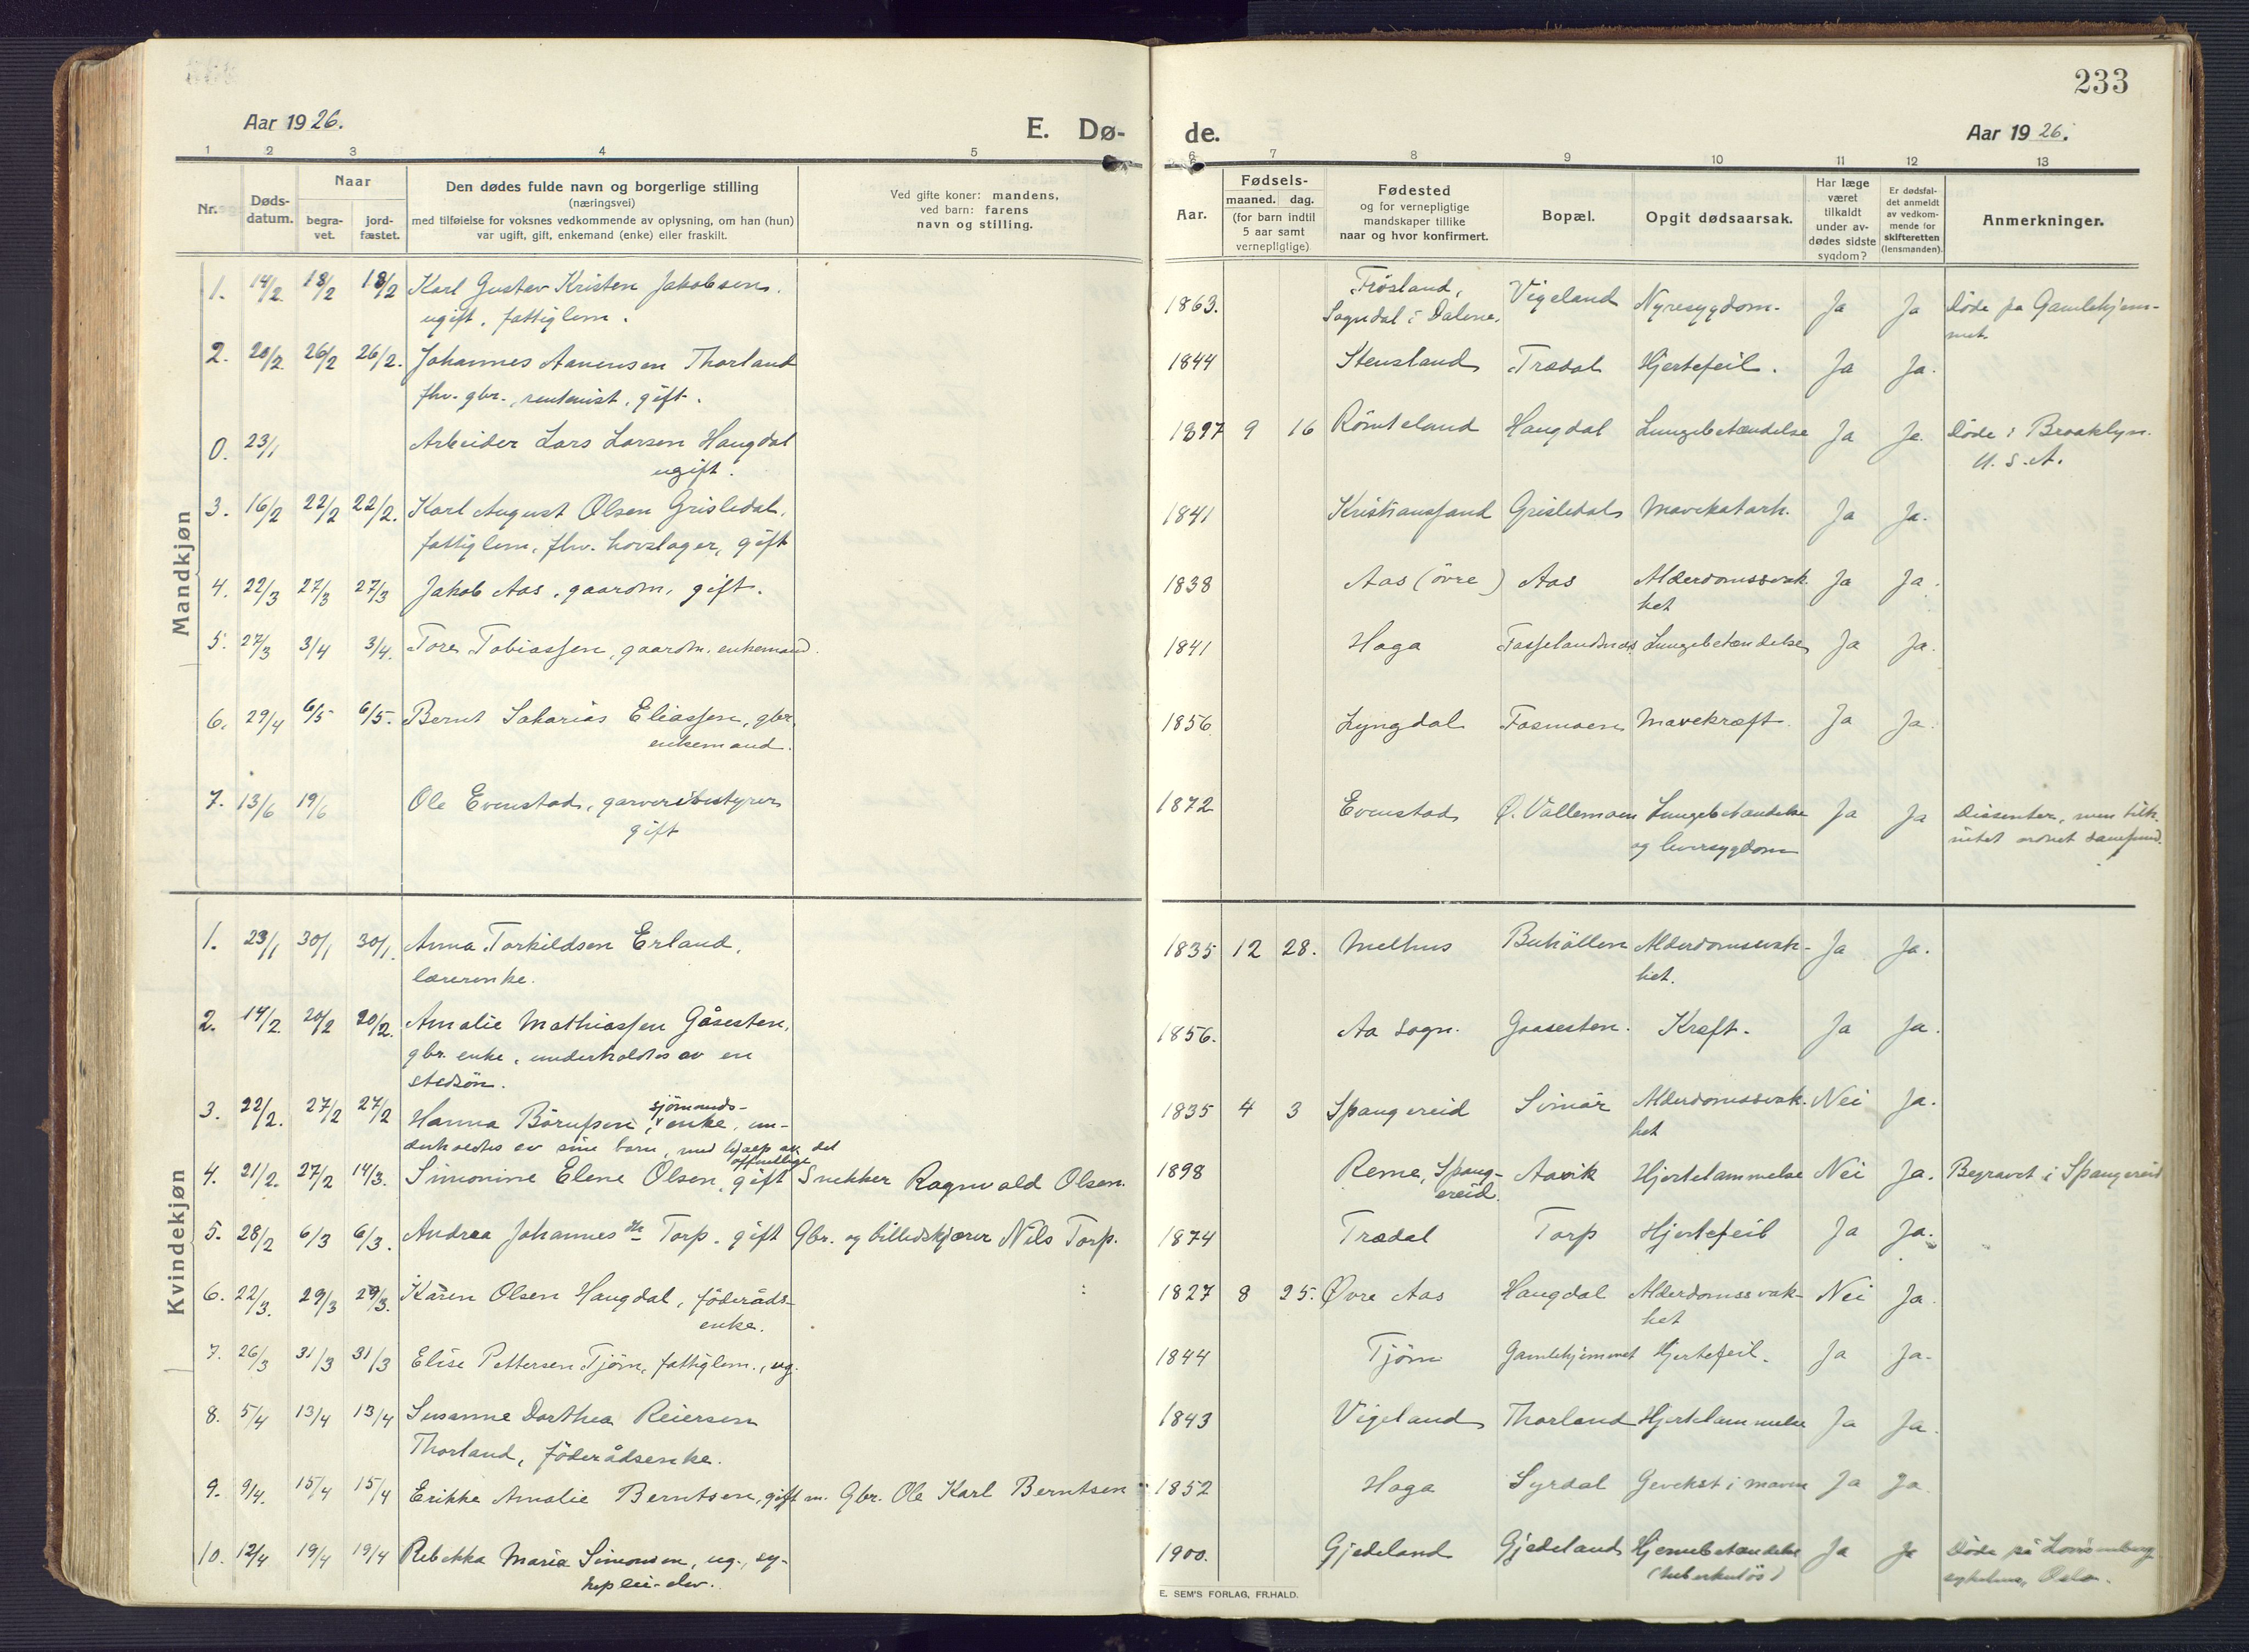 233
Aar 1926.
E. Dø-
de.
Aar 1926.
1 2 3 4 5 6 7 8 9 10 11 12 13
Nr.
Døds-
datum.
Naar
begra-
vet.
jord-
fæstet.
Den dødes fulde navn og borgerlige stilling
(næringsvei)
med tilføielse for voksnes vedkommende av oplysning, om han (hun)
var ugift, gift, enkemand (enke) eller fraskilt.
Ved gifte koner: mandens,
ved barn: farens
navn og stilling.
Aar.
Fødsels-
maaned. dag.
(for barn indtil
5 aar samt
vernepligtige)
Fødested
og for vernepligtige
mandskaper tillike
naar og hvor konfirmert.
Bopæl.
Opgit dødsaarsak.
Har læge
været
tilkaldt
under av-
dødes sidste
sygdom?
Er dødsfal-
det anmeldt
av vedkom-
mende for
skifteretten
(lensmanden).
Anmerkninger.
Mandkjøn
1. 14/2 18/2 18/2 Karl Gustav Kristen Jakobsen. 1863. Frösland, Vigeland Nyresygdom. Ja Ja Döde på Gamlehjem-
ugift, fattiglem. Sogndal i Dalene. met.
2. 20/2 26/2 26/2. Johannes Aanensen Thorland 1844 Stensland Trædal Hjertefeil. Ja Ja.
fhv. gbr., rentenist, gift.
0. 23/1 Arbeider Lars Larsen Haugdal 1897 9 16 Römteland Haugdal Lungebetændelse Ja Ja. Döde i Brooklyn.
ugift. U.S.A.
3. 16/2 22/2 22/2. Karl August Olsen Grisledal, 1841 Kristianssand Grisledal Mavekatarh. Ja Ja.
fattiglem, fhv. hovslager, gift
4. 22/3 27/3 27/3 Jakob Aas, gaardm, gift. 1838 Aas (övre) Aas Alderdomssvak- Ja Ja.
het
5. 27/3 3/4 3/4. Tore Tobiassen, gaardm. enkemand. 1841 Haga Fasselandsnæs Lungebetændelse Ja Ja.
6. 29/4 6/5 6/5. Bernt Sakarias Eliassen, gbr. 1856 Lyngdal Fosmoen Mavekræft. Ja Ja.
enkemand.
7. 13/6 19/6 Ole Evenstad, garveribestyrer 1872 Evenstad Ø. Vallemoen Lungebetændelse Ja Ja Dissenter, men
gift og leversygdom ordnet samfund.
Kvindekjøn
1. 23/1 30/1 30/1. Anna Torkildsen Erland, 1835 12 28. Melhus Buhöllen Alderdomssvak- Ja Ja.
lærerenke. het.
2. 14/2. 20/2 20/2. Amalie Mathiassen Gåsesten, 1856. Aa sogn. Gaasesten. Kræft. Ja Ja.
gbr. enke, underholdtes av en
stedsön.
3. 22/2. 27/2 27/2 Hanna Börufsen, sjömands-enke, un- 1835 4 3 Spangereid Svinör Alderdomssvak- Nei Ja.
derholdtes av sine barn, med hjælp av det offentlige het
4. 21/2. 27/2 14/3. Simonine Elene Olsen, gift Snekker Ragnvald Olsen. 1898 Reme, Spang- Aavik Hjertelammelse Nei Ja. Begravet i Spangereid
ereid.
5. 28/2 6/3 6/3. Andrea Johannesdtr Torp. gift Gbr. og billedskjærer Nils Torp. 1874 Trædal Torp Hjertefeil Ja Ja.
6. 22/3. 29/3 29/3. Karen Olsen Haugdal, föderåds- 1827 8 25. Øvre Aas Haugdal Alderdomssvak- Nei Ja.
enke. het
7. 26/3 31/3 31/3 Elise Pettersen Tjöm, fattiglem., ug. 1844 Tjöm Gamlehjemmet Hjertefeil. Ja Ja.
8. 5/4 13/4 13/4 Susanne Dorthea Reiersen 1843 Vigeland Thorland Hjertelammelse Ja Ja.
Thorland, föderådsenke.
9. 9/4. 15/4 15/4 Erikke Amalie Berntsen, gift m. Gbr. Ole Karl Berntsen 1852 Haga Syrdal Gevekst i maven Ja Ja.
10. 12/4 19/4 19/4 Rebekka Maria Simonsen, ug., sy- 1900. Gjedeland Gjedeland Hjernebetændelse Ja Ja Döde på Lovisenberg
kepleie-elev. (tuberkulös) sykehus, Oslo.
E. SEM'S FORLAG, FR.HALD.